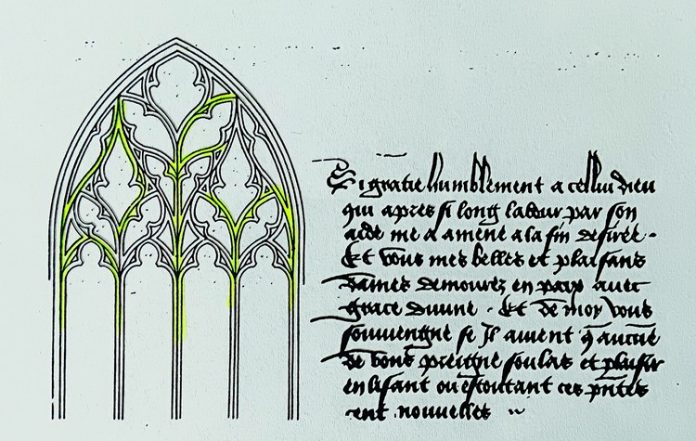 Et gratie humblement a celluy dieu
qui apres si long labour par son
aide me a amene a la fin desiree .
Et vous mes belles et plaisans
dames demourez en paix avec
grace divine . Et de moy vous
souviengne se Il avient q̄ aucūe
de vous preigne soulas et plaisir
en lisant ou escoutant ces p̄ntes
cent nouvelles